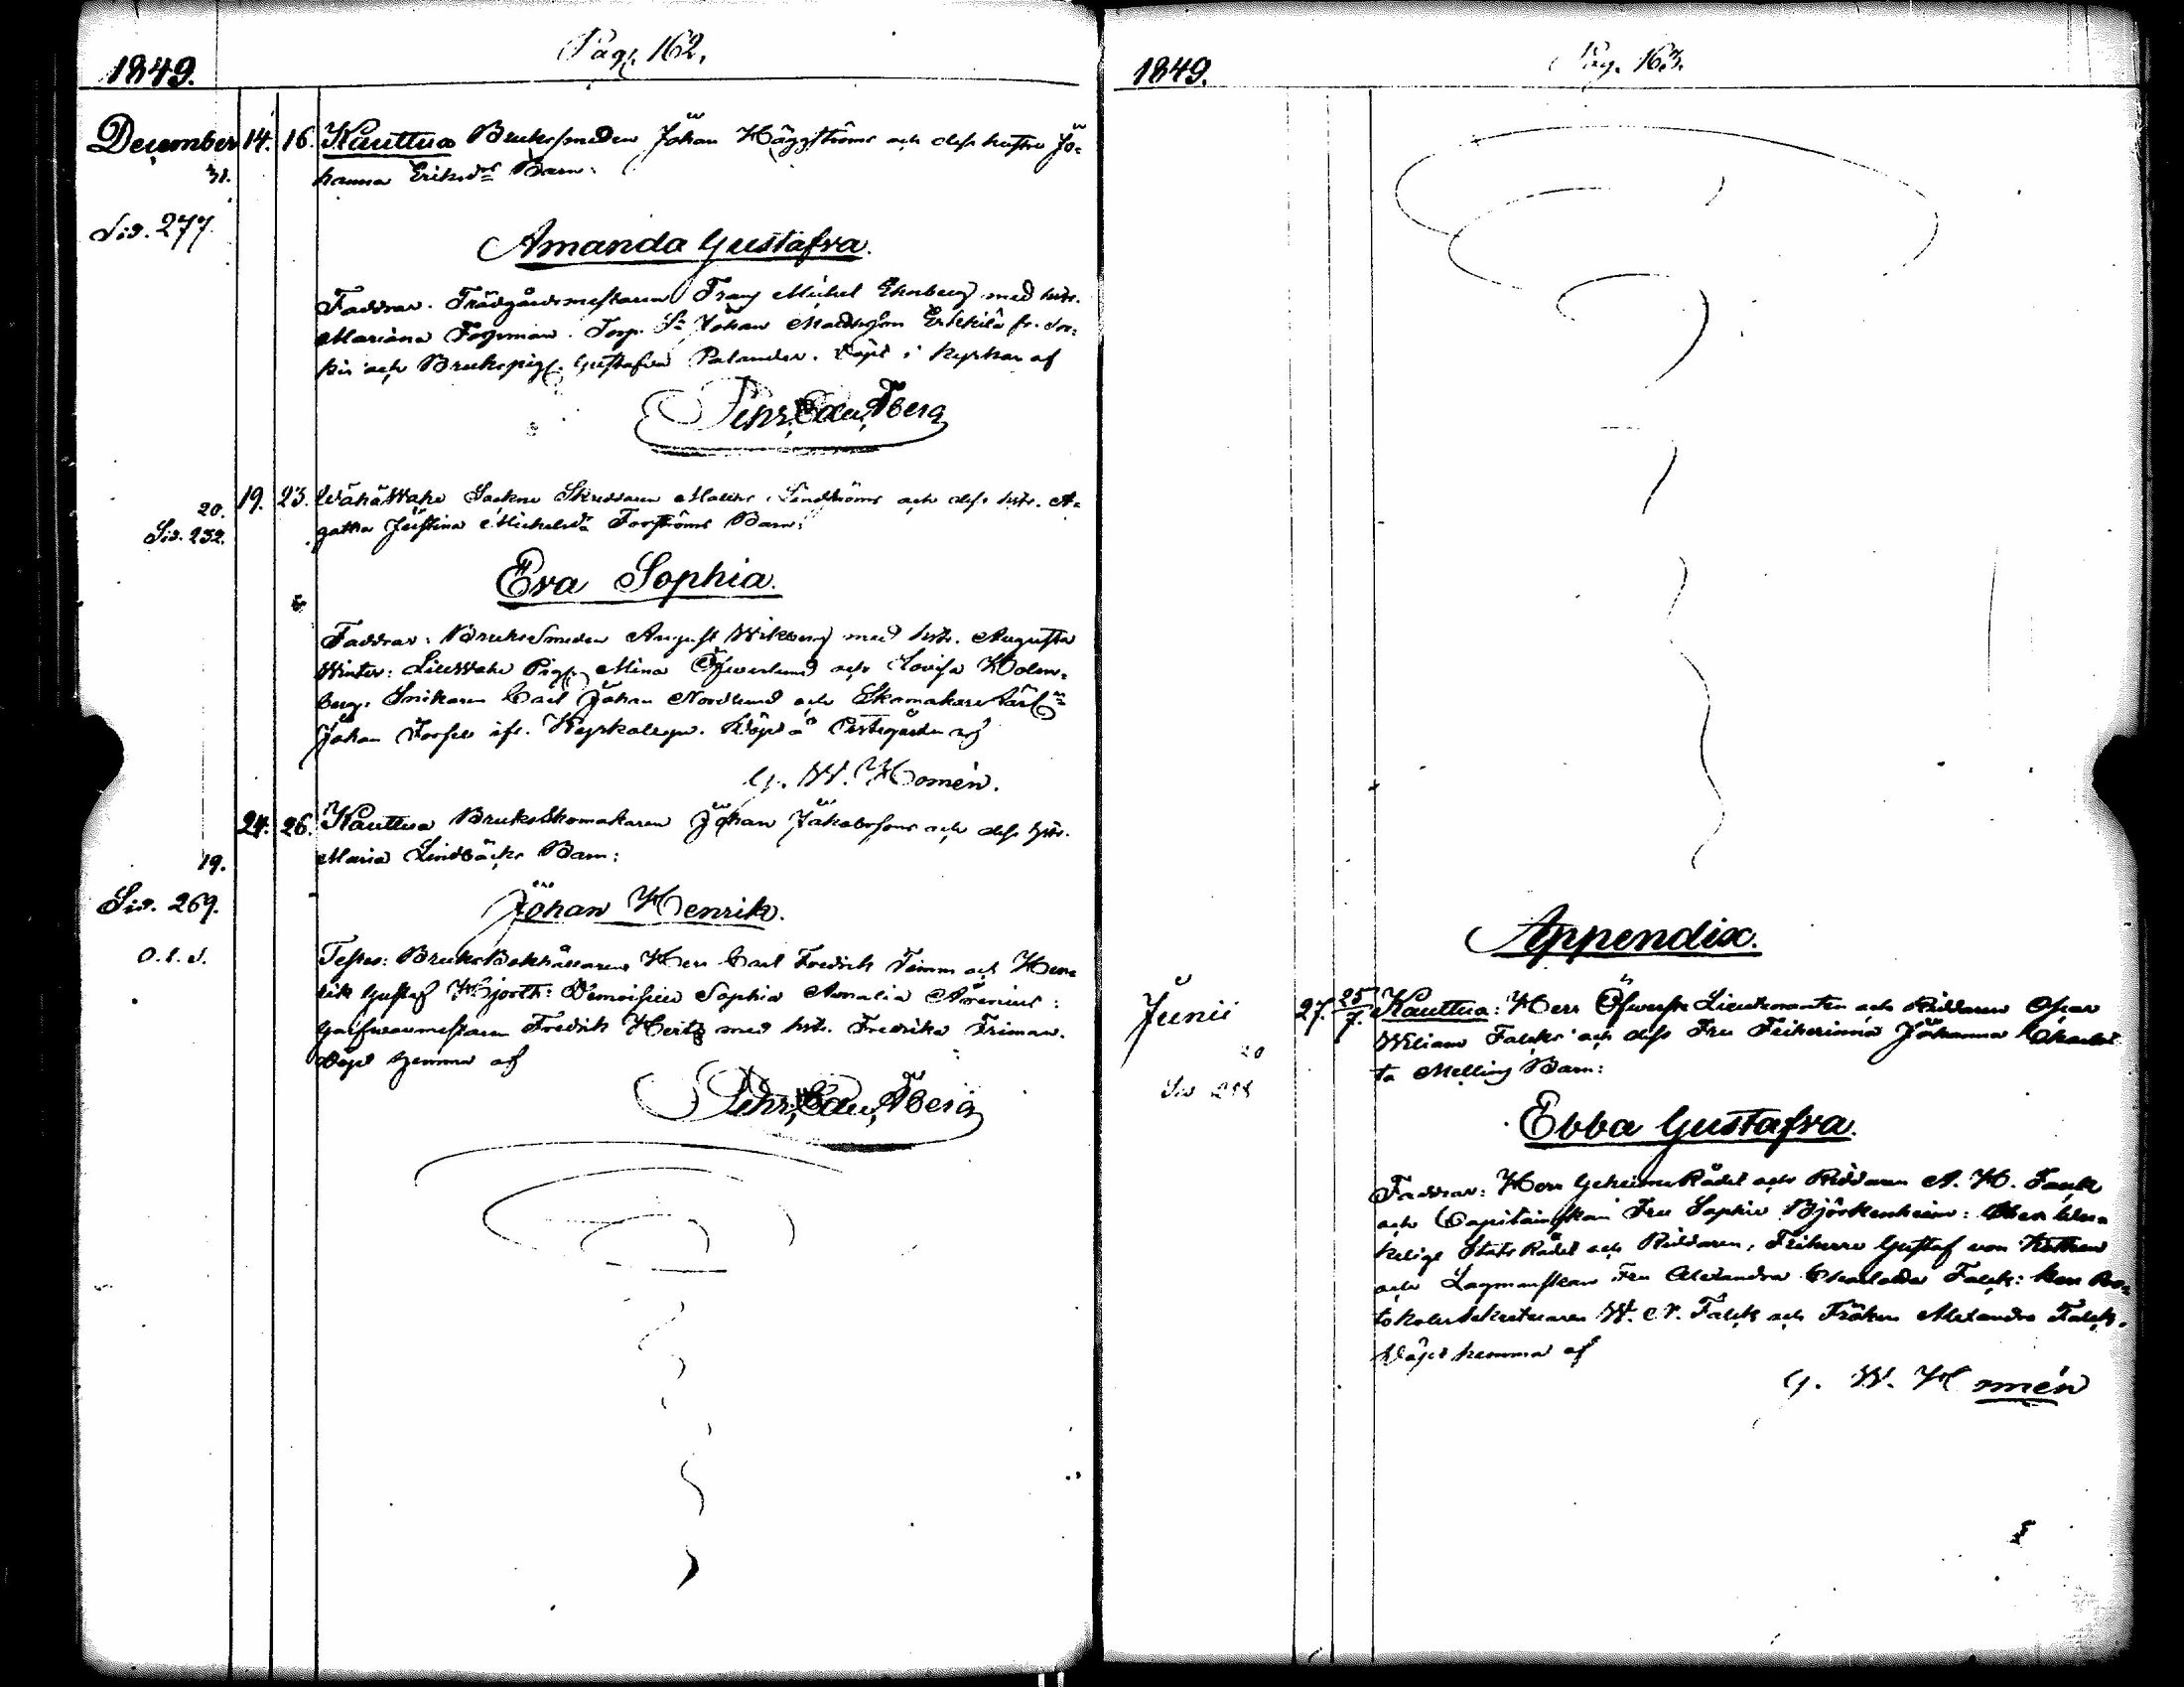 1849.
Pag. 162.
December 14. 16. Kauttua Brukssmeden Johan Häggströms och dess hustru Jo=
31. hanna Eriksdr Barn:
Sid. 277.
Amanda Gustafva.
Faddrar. Trädgårdsmestaren Frans Michel Ekberg med hstr.
Mariana Forsman. Torp. Sn Johan Mattsson Erkkilä fr.
kis och Brukspig. Gustafva Palander. Döpt i Kyrkan af
Pehr Edw. Åberg
19. 23. Wähäwahe Sockne Skräddaren Malins Lindströms och dess hstr. A=
20. gatha Justina Michelsdr Forströms Barn:
Sid. 232.
Eva Sophia.
Faddrar: BruksSmeden August Wikberg med hstr. Augusta
Winter: Pig. Mina Öfverlund och Lovisa Holm=
berg. Snikaren Carl Johan Nordlund och Skomakare Lärl.
Johan Forsell ifr. Kyrkobyn. Döpt å Prestgården af
G. W. Homén.
24. 26. Kauttua BruksSkomakaren Johan Jakobssons och dess hstr.
19. Maria Lindbäcks Barn:
Sid. 269.
Johan Henrik.
Testes: BruksBokhållaren Herr Carl Fredrik Timm och Hen=
rik Gustaf Hjorth: Demoiselle Sophia Amalia Arenius:
Garfvaremestaren Fredrik Hertz med hstr. Fredrika Friman.
Döpt hemma af
Pehr Edw. Åberg
1849.
Pag. 163.
Appendix.
Junii 27. 25/7. Kauttua: Herr Öfverste Lieutenanten och Riddaren Oscar
20 Wiliam Falcks och dess Fru Friherinna Johanna Charlot
ta Melling Barn:
Ebba Gustafva.
Faddrar: Herr GeheimeRådet och Riddaren A. H. Falck
och Capitainskan Fru Sophie Björkenheim: Herr Wer=
kelige StatsRådet och Riddaren, Friherre Gustaf von Kothen
och Lagmanskan Fru Alexandra Charlotta Falck: Herr Pro=
tokolssekreteraren W. N. Falck och Fröken Alexandra Falck.
Döpt hemma af
G. W. Homén